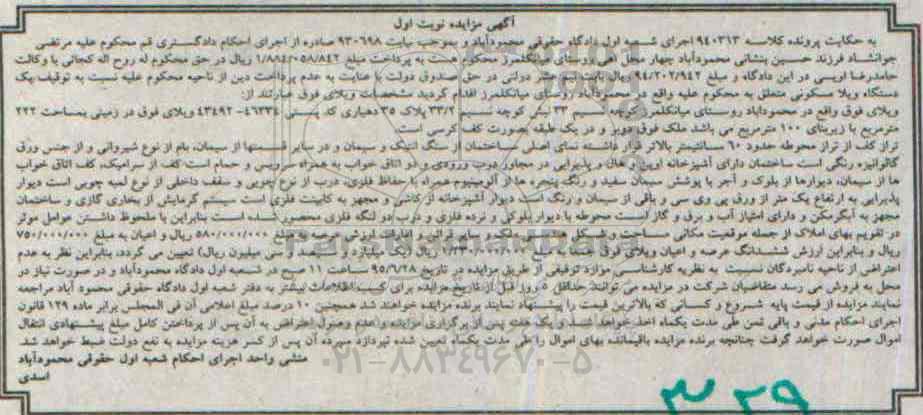 آگهی مزایده نوبت اول
به حکایت پرونده کلاسه ۹۴۰۳۱۳ اجرای شعبه اول دادگاه حقوقی محمودآباد و بموجب نیابت ۹۳۰۶۹۸ صادره از اجرای احکام دادگستری قم محکوم علیه مرتضی
جوانشاد فرزند حسین بنشانی محمودآباد چهار محل اهی روستای میانگلمرز محکوم هست به پرداخت مبلغ ۱/۸۸۴/۰۵۸/۸۴۲ ریال در حق محکوم له روح اله کجائی با وکالت
حامدرضا اویسی در این دادگاه و مبلغ ۹۴/۲۰۲/۹۴۲ ریال بابت نیم عشر دولتی در حق صندوق دولت با عنایت به عدم پرداخت دین از ناحیه محکوم علیه نسبت به توقیف یک
دستگاه ویلا مسکونی متعلق به محکوم علیه واقع در محمودآباد روستای میانگلمرز اقدام گردید مشخصات ویلای فوق عبارتند از:
ویلای فوق واقع در محموداباد روستای میانگلمرز کوچه نسیم ۳۳ نبش کوچه نسیم ۳۳/۲ پلاک ۳۵ دهیاری کد پستی ۴۶۳۳۴-۴۳۴۹۲ ویلای فوق در زمینی بمساحت ۲۲۲
مترمربع با زیربنای ۱۰۰ مترمربع می باشد ملک فوق دوبر و در یک طبقه بصورت کف کرسی است.
تراز کف از تراز محوطه حدود ۶۰ سانتیمتر بالاتر قرار داشته نمای اصلی ساختمان از سنگ آنتیک و سیمان و در سایر قسمتها از سیمان، بام از نوع شیروانی و از جنس ورق
گالوانیزه رنگی است ساختمان دارای آشپزخانه اوپن، هال و پذیرایی در مجاور درب ورودی و دو اتاق خواب به همراه سرویس و حمام است کف از سرامیک، کف اتاق خواب
ها از سیمان، دیوارها از بلوک و آجر با پوشش سیمان سفید و رنگ، پنجره ها از آلومینیوم همراه با حفاظ فلزی، درب از نوع چوبی و سقف داخلی از نوع لمبه چوبی است دیوار
پذیرایی به ارتفاع یک متر از ورق پی وی سی و باقی از سیمان و رنگ است دیوار آشپزخانه از کاشی و مجهز به کابینت فلزی است سیستم گرمایش از بخاری گازی و ساختمان
مجهز به آبگرمکن و دارای امتیاز آب و برق و گاز است محوطه با دیوار بلوکی و نرده فلزی و درب دو لنگه فلزی محصور شده است بنابراین با ملحوظ داشتن عوامل موثر
در تقویم بهای املاک از جمله موقعیت مکانی مساحت و شکل هندسی ملک و سایر قرائن و امارات ارزش عرصه به مبلغ ۵۸۰/۰۰۰/۰۰۰ ریال و اعیان به مبلغ ۷۵۰/۰۰۰/۰۰۰
ریال و بنابراین ارزش ششدانگ عرصه و اعیان ویلای فوق جمعا به مبلغ ۱/۳۳۰/۰۰۰/۰۰۰ ریال (یک میلیارد و سیصد و سی میلیون ریال) تعیین می گردد، بنابراین نظر به عدم
اعتراض از ناحیه نامبردگان نسبت به نظریه کارشناسی مورد توقیفی از طریق مزایده در تاریخ ۹۵/۶/۲۸ ساعت ۱۱ صبح در شعبه اول دادگاه محمودآباد و در صورت نیاز در
محل به فروش می رسد متقاضیان شرکت در مزایده می توانند حداقل ۵ روز قبل از تاریخ مزایده برای کسب اطلاعات بیشتر به دفتر شعبه اول دادگاه حقوقی محمود آباد مراجعه
نمایند مزایده از قیمت پایه شروع و کسانی که بالاترین قیمت را پیشنهاد نمایند برنده مزایده خواهند شد همچنین ۱۰ درصد مبلغ اعلامی آن فی المجلس برابر ماده ۱۲۹ قانون
اجرای احکام مدنی و باقی ثمن طی مدت یکماه اخذ خواهد شد و یک هفته پس از برگزاری مزایده و عدم وصول اعتراض به آن پس از پرداختن کامل مبلغ پیشنهادی انتقال
اموال صورت خواهد گرفت چنانچه برنده مزایده باقیمانده بهای اموال را طی مدت یکماه تعیین شده نپردازد سپرده آن پس از کسر هزینه مزایده به نفع دولت ضبط خواهد شد.
منشی واحد اجرای احکام شعبه اول حقوقی محمودآباد
اسدی
۰۲۱-۸۸۳۴۹۶۷۰-۵
۳۲۹